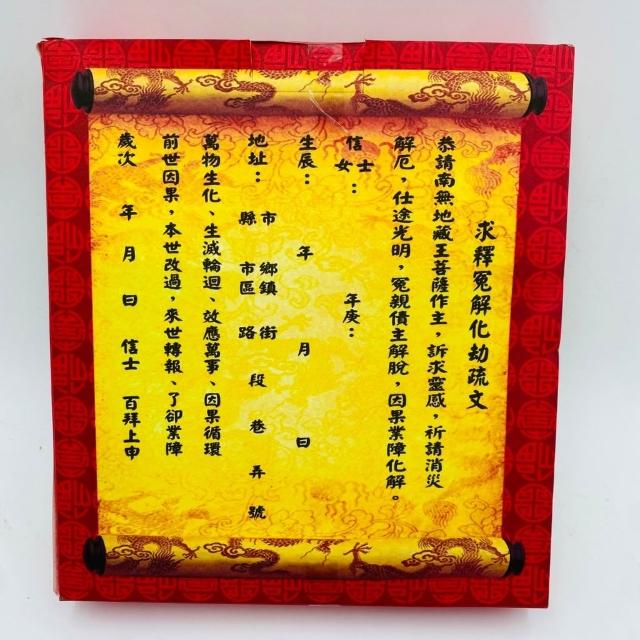 求釋冤解化劫疏文
恭請南無地藏王菩薩作主，訴求靈感，祈請消災
解厄，仕途光明，冤親債主解脫，因果業障化解。
信士女： 年庚：
生辰： 年 月 日
地址： 縣市 鄉鎮市區 街路 段 巷 弄 號
萬物生化、生滅輪迴、效應萬事、因果循環
前世因果，本世改過，來世轉報、了卻業障
歲次 年 月 日 信士 百拜上申